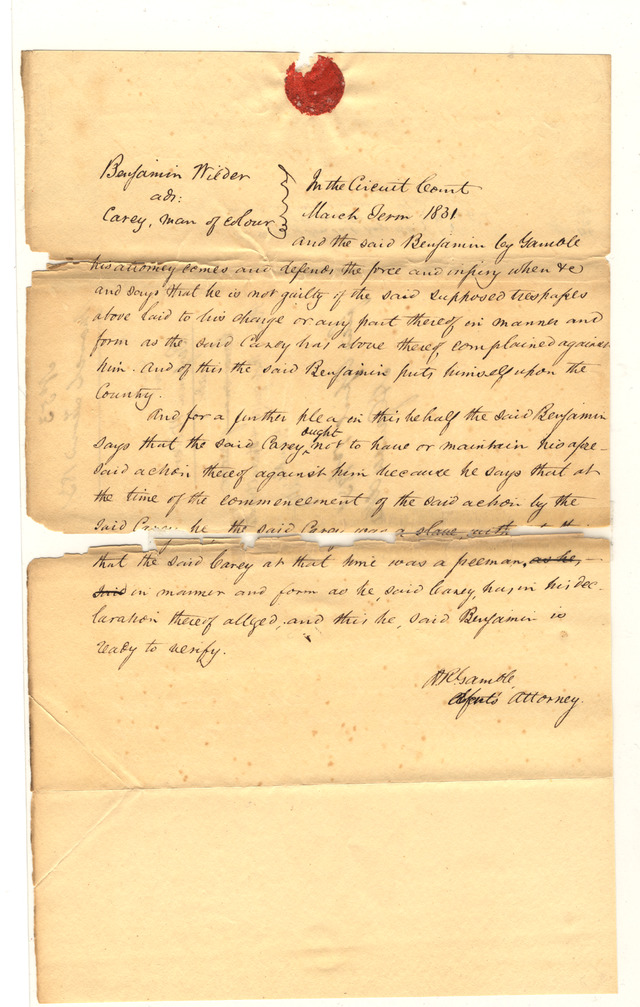 Benjamin Wilder
ads:
Carey, man of colour
In the Circuit Court
March Term 1831
And the said Benjamin by Gamble
his attorney comes and defends the force and injury when &c
and says that he is not guilty of the said supposed trespasses
above laid to his charge or any part thereof in manner and
form as the said Carey has above thereof, complained against
him. And of this the said Benjamin puts himself upon the
Country.
And for a further plea in this behalf the said Benjamin
says that the said Carey ought not to have or maintain his afore-
said action thereof against him because he says that at
the time of the commencement of the said action by the
said Carey he the said Carey was a slave with
that the said Carey at that time was a freeman, as he,
said in manner and form as he said Carey, has in his dec-
laration thereof alleged, and this he, said Benjamin is
ready to verify.
Gamble
Attorney.